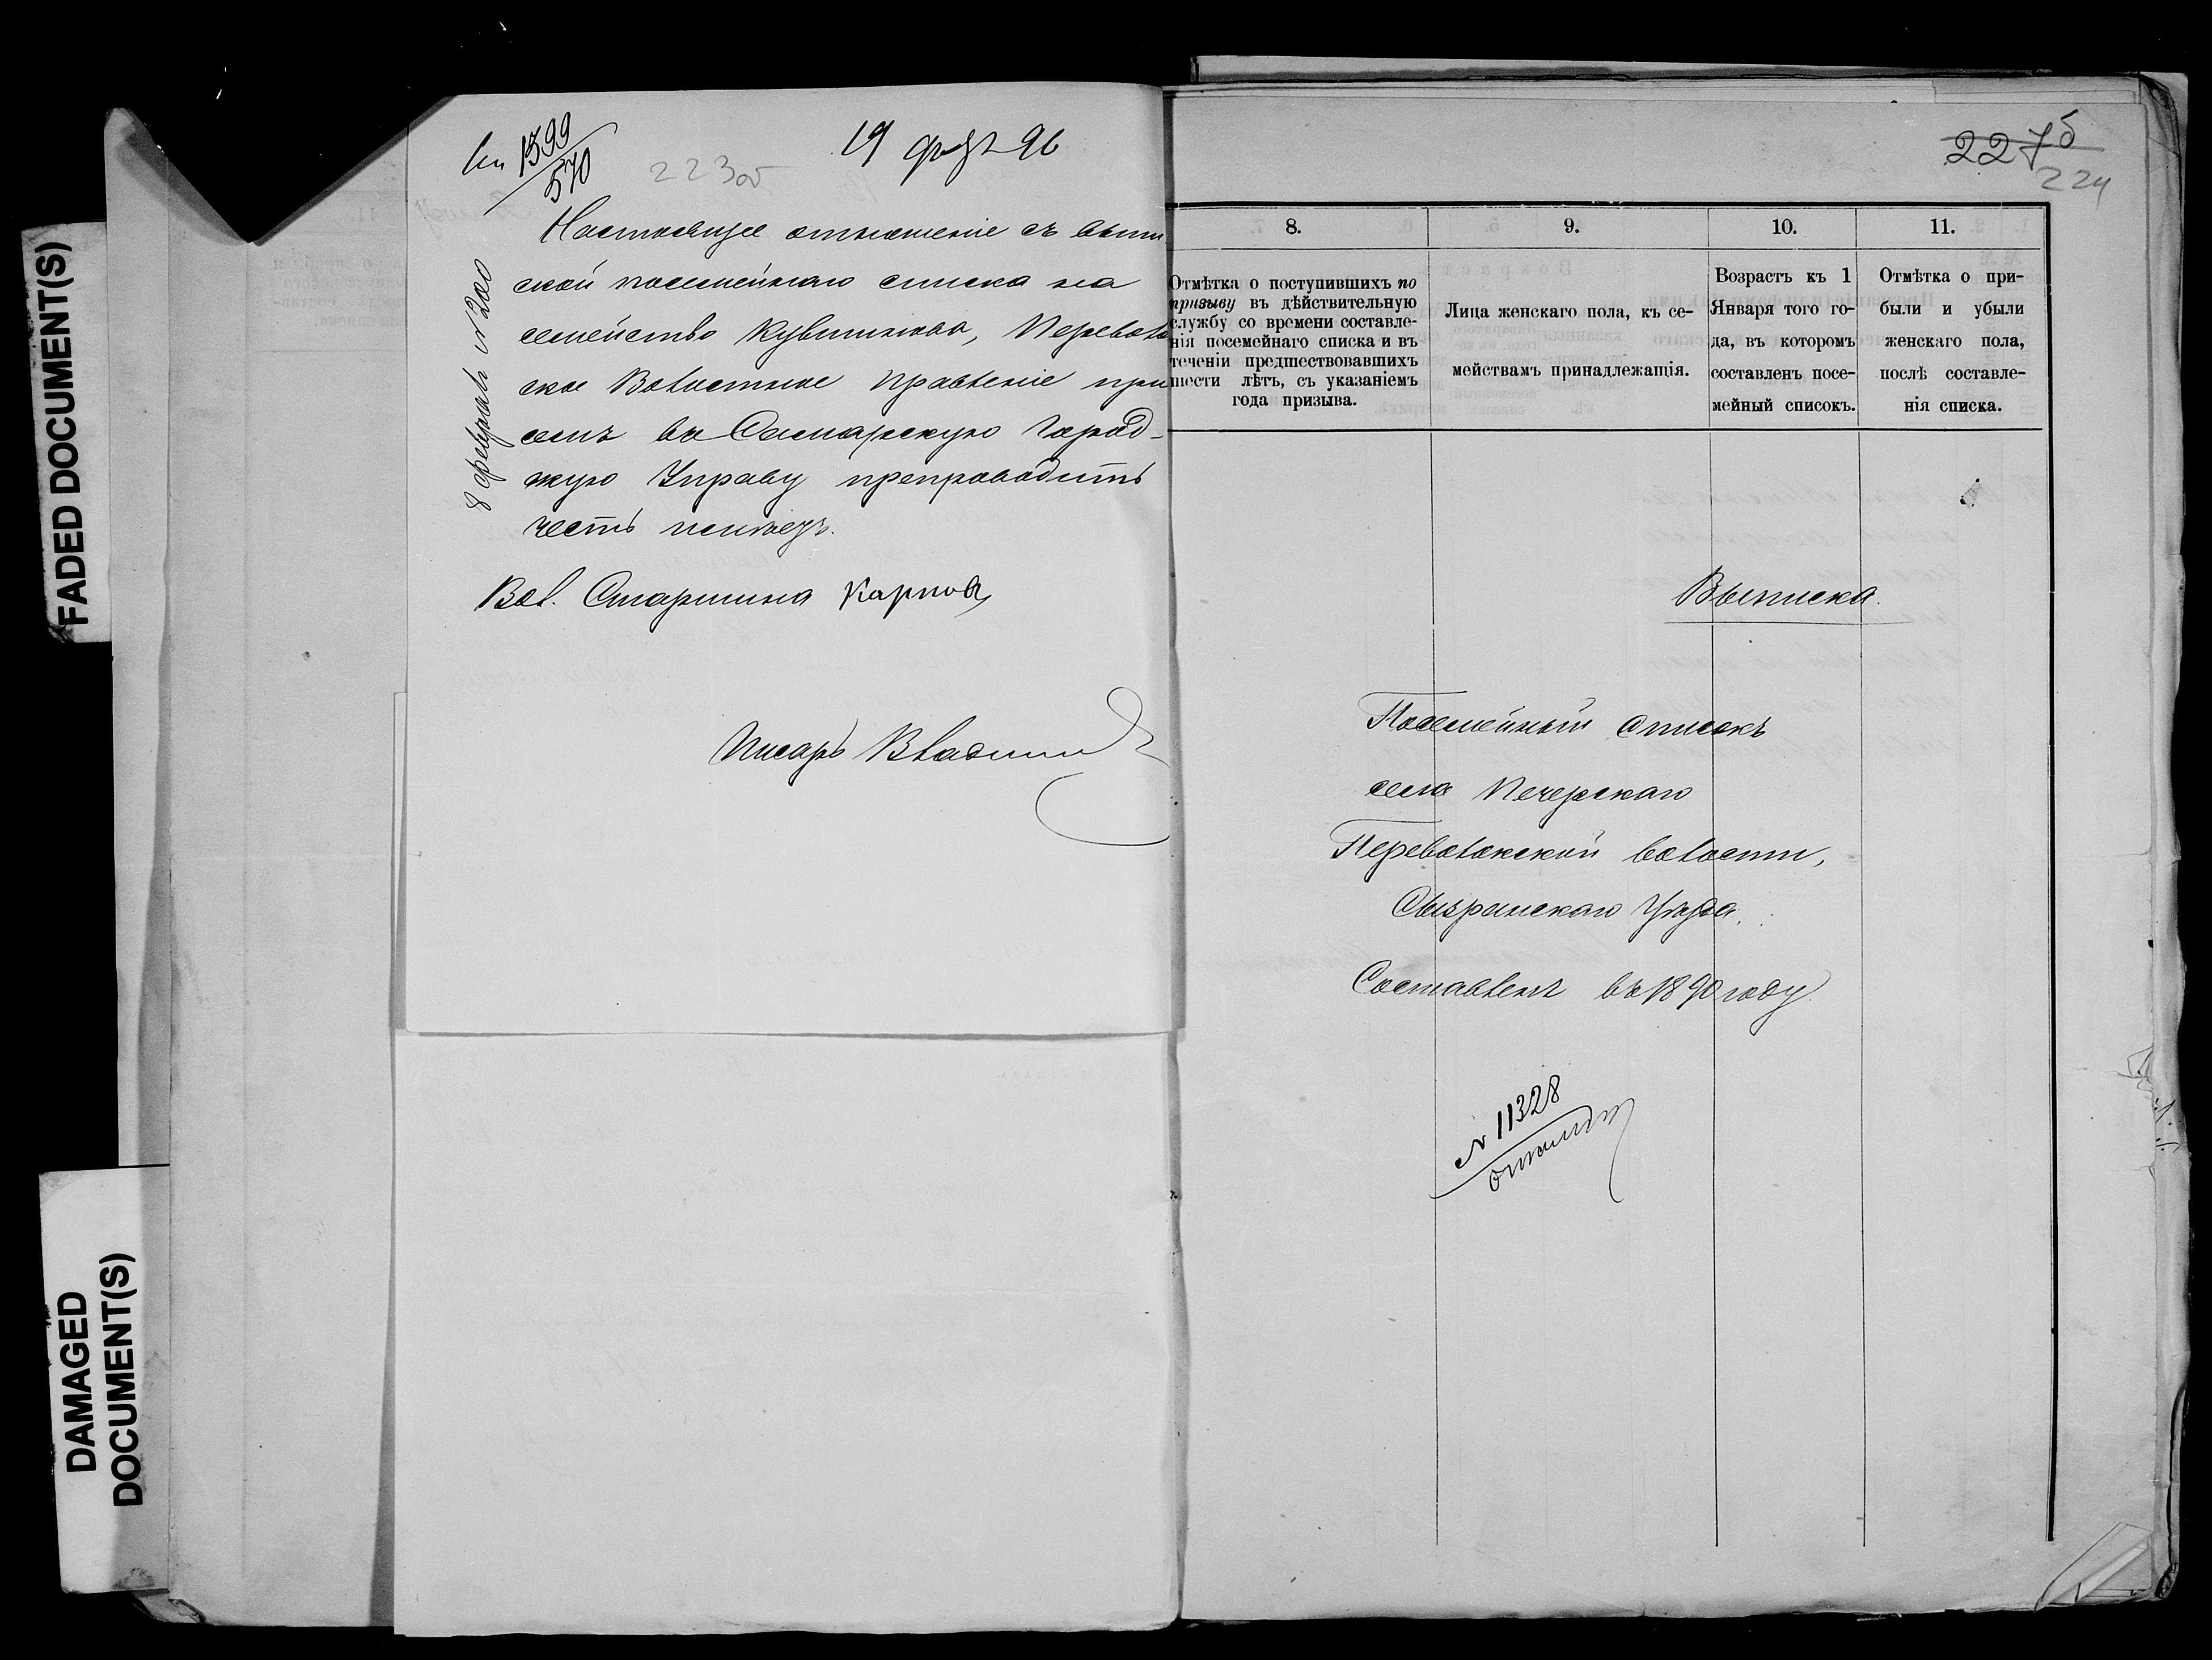 FADED DOCUMENT(S)
DAMAGED
DOCUMENT(S)
1399
570
223об
19 фев 96
8 февраля № 200
Настоящее отношеніе съ выпи
ской посемейнаго списка на
семейство Кувшинова, Переволо
ское Волостное Правленіе при
семъ въ Самарскую Город-
скую Управу препроводить
честь имѣетъ.
Вол. Старшина Карповъ
Писарь
227б
224
8. 9. 10. 11.
Отмѣтка о поступившихъ по
призыву въ дѣйствительную
службу со времени составле-
нія посемейнаго списка и въ
теченіи предшествовавшихъ
шести лѣтъ, съ указаніемъ
года призыва.
Лица женскаго пола, къ се-
мействамъ принадлежащія.
Возрастъ къ 1
Января того го-
да, въ которомъ
составленъ посе-
мейный списокъ.
Отмѣтка о при-
были и убыли
женскаго пола,
послѣ составле-
нія списка.
Выписка.
Посемейный списокъ
села Печерскаго
Переволокской волости,
Сызранскаго Уѣзда.
Составленъ въ 1890 году.
№ 11328